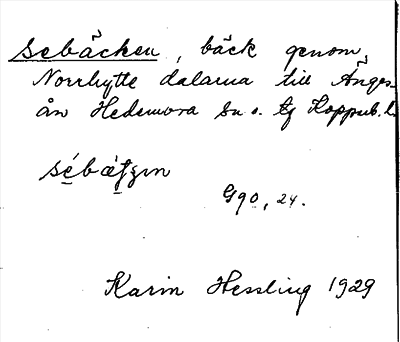 Sebäcken, bäck genom
Norrhytte dalarna till Ånges-
ån Hedemora sn o. tg Koppub. l.
sébætʒın
G90, 24.
Karin Hessling 1929